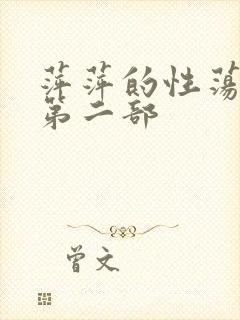 萍萍的性荡
第二部
曾文